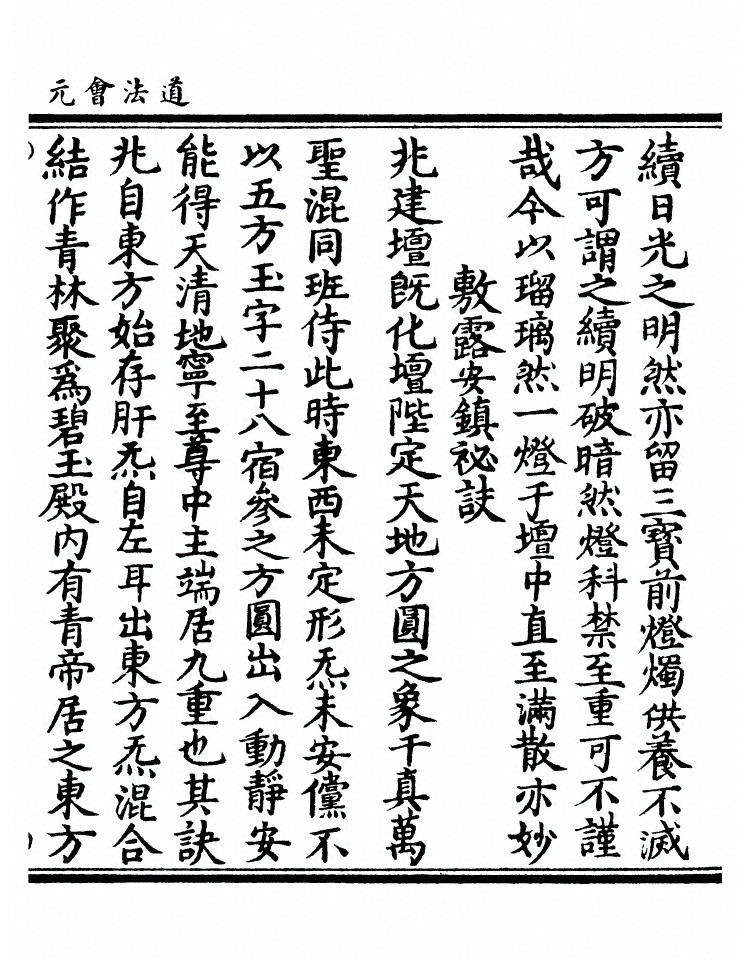 道法會元
續日光之明然亦留三寳前燈燭供養不滅
方可謂之續明破暗然燈科禁至重可不謹
哉今以瑠璃然一燈于壇中直至滿散亦妙
敷露安鎮祕訣
兆建壇既化壇陛定天地方圓之象千真萬
聖混同班侍此時東西未定形炁未安儻不
以五方玉字二十八宿參之方圓出入動靜安
能得天清地寧至尊中主端居九重也其訣
兆自東方始存肝炁自左耳出東方炁混合
結作青林聚爲碧玉殿内有青帝居之東方